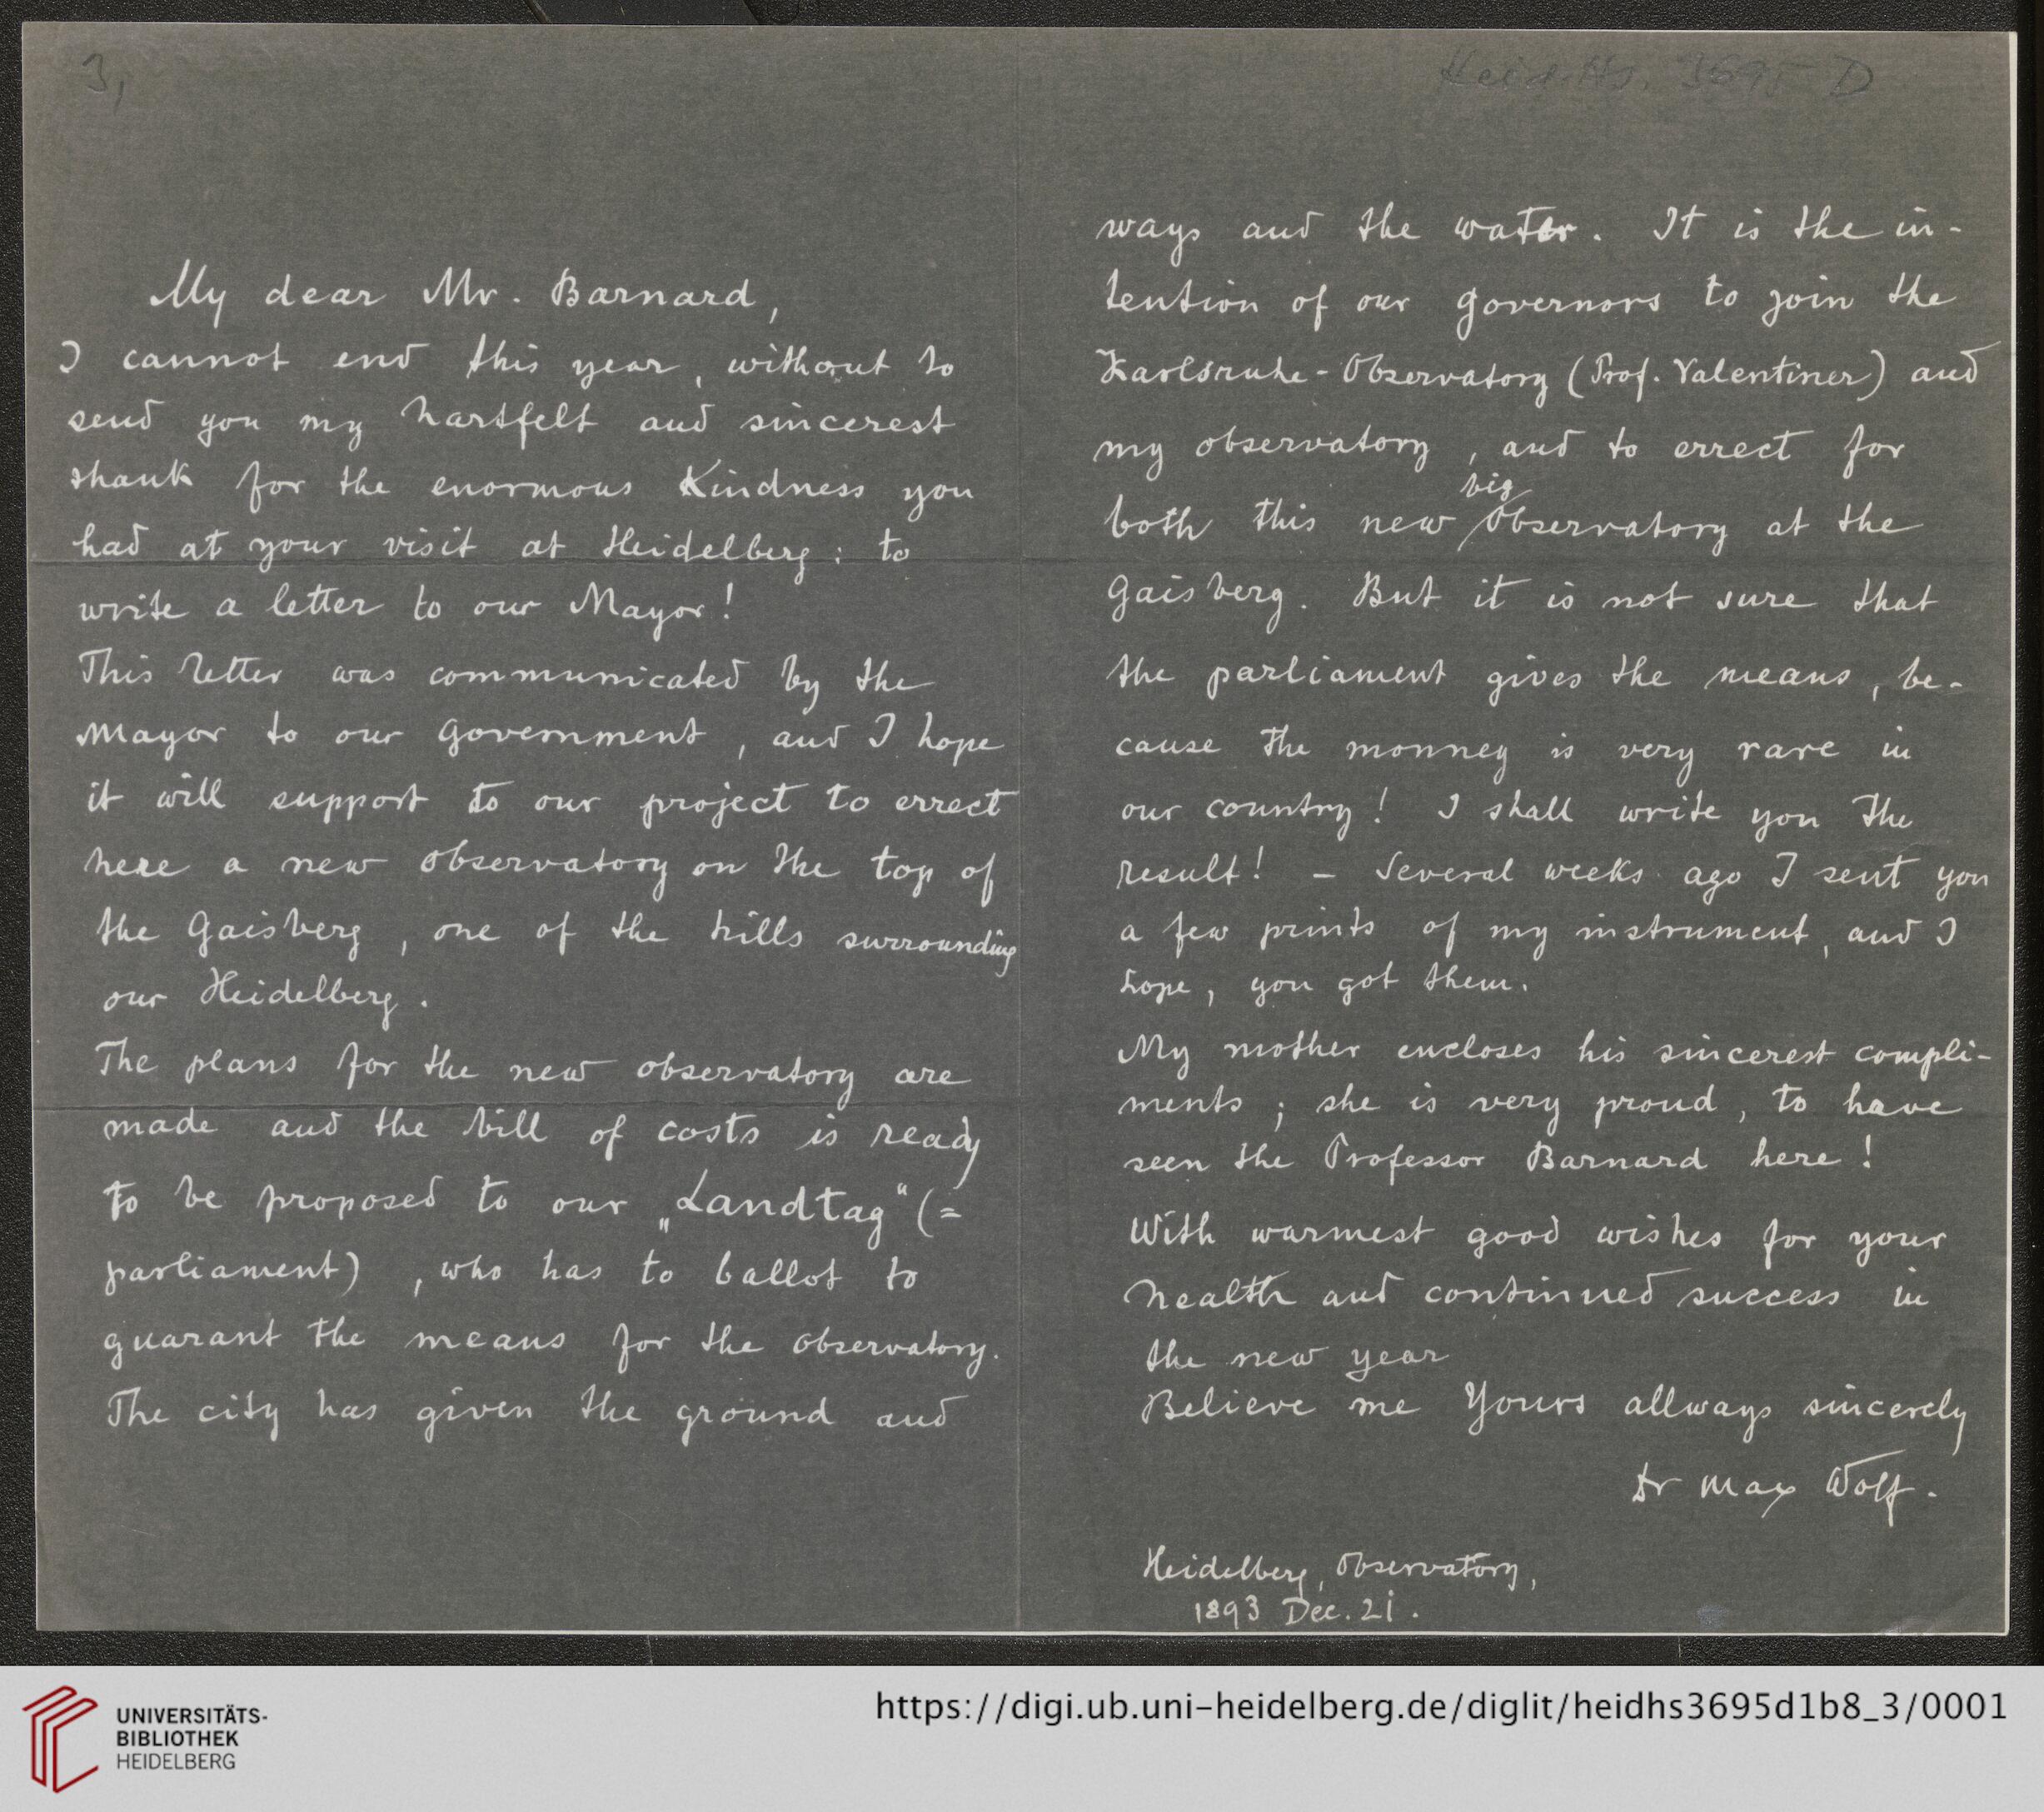 3,
Heid. Hs. 3695 D
My dear Mr. Barnard,
I cannot end this year, without to
send you my hartfelt and sincerest
thank for the enormous Kindness you
had at your visit at Heidelberg: to
write a letter to our Mayor!
This letter was communicated by the
Mayor to our government, and I hope
it will support to our project to errect
here a new observatory on the top of
the Gaisberg, one of the hills surrounding
our Heidelberg.
The plans for the new observatory are
made and the bill of costs is ready
to be proposed to our „Landtag“ (=
parliament), who has to ballot to
guarant the means for the observatory.
The city has given the ground and
ways and the water. It is the in-
tention of our governors to join the
Karlsruhe-Observatory (Prof. Valentiner) and
my observatory, and to errect for
big
both this new Observatory at the
Gaisberg. But it is not sure that
the parliament gives the means, be-
cause the monney is very rare in
our country! I shall write you the
result! – Several weeks ago I sent you
a few prints of my instrument, and I
hope, you got them.
My mother encloses his sincerest compli-
ments; she is very proud, to have
seen the Professor Barnard here!
With warmest good wishes for your
health and continued success in
the new year
Believe me Yours allways sincerely
Dr Max Wolf.
Heidelberg, Observatory,
1893 Dec. 21.
UNIVERSITÄTS-
BIBLIOTHEK
HEIDELBERG
https://digi.ub.uni-heidelberg.de/diglit/heidhs3695d1b8_3/0001